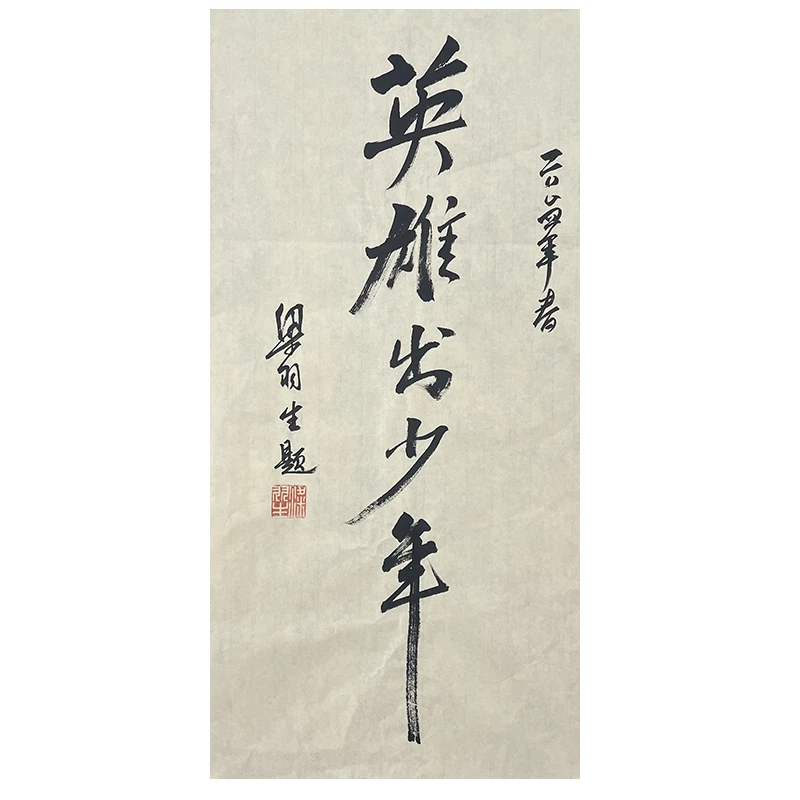 二〇〇四年春
英雄出少年
梁羽生題
梁羽生